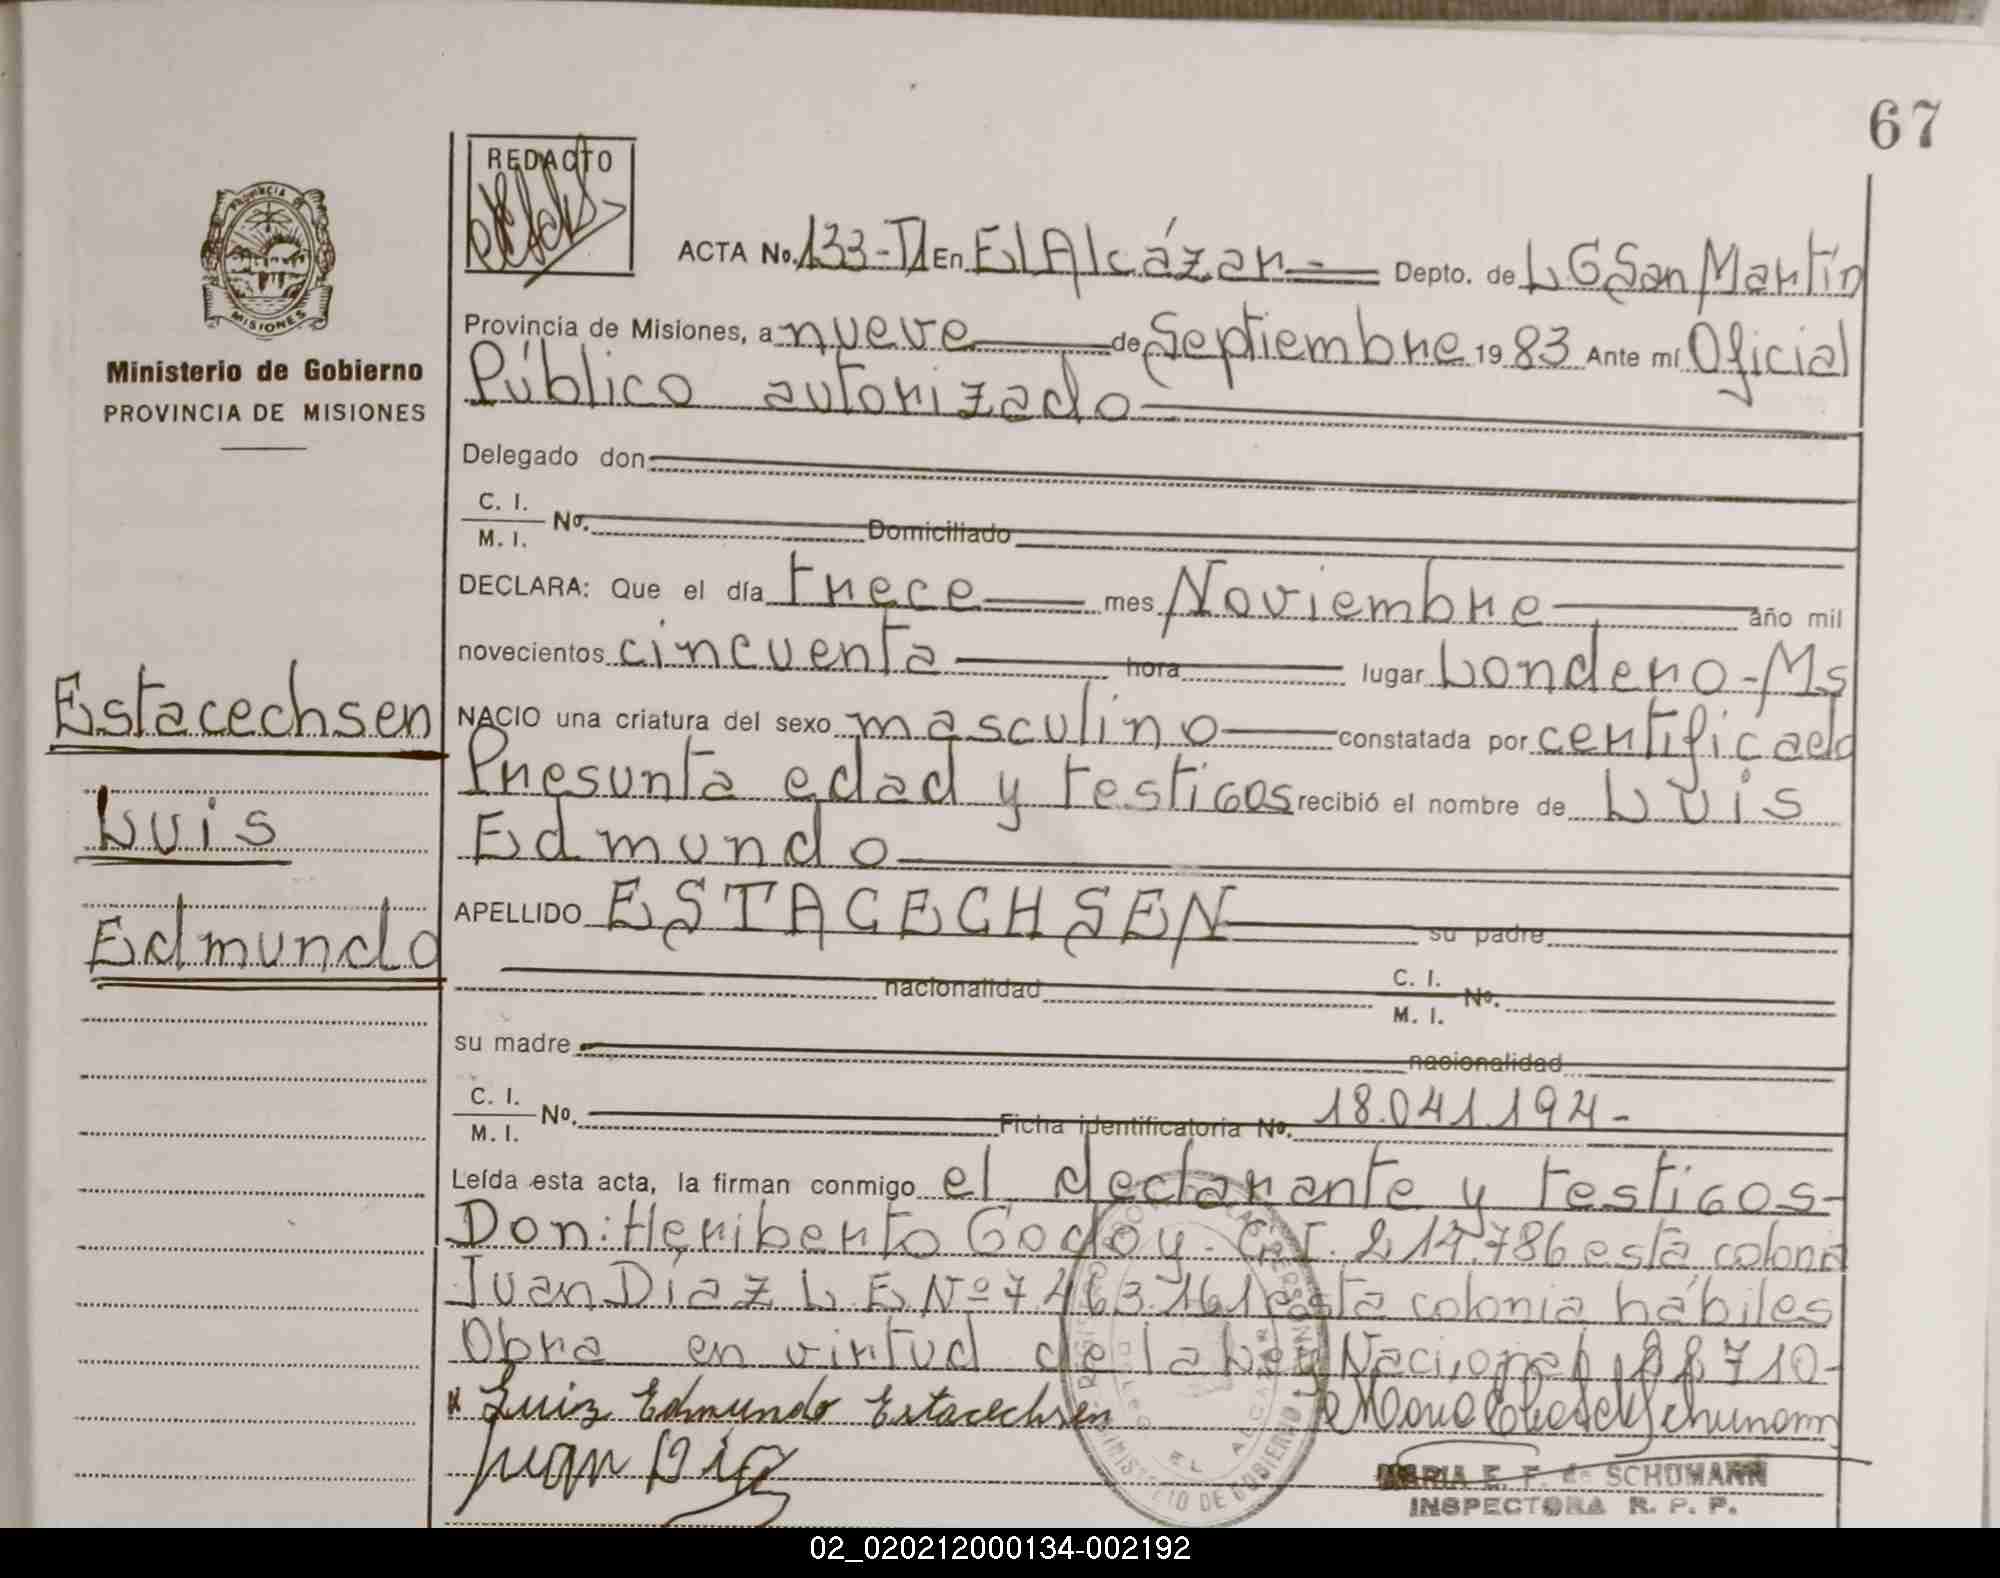 67
REDACTO
PROVINCIA DE
MISIONES
Ministerio de Gobierno
PROVINCIA DE MISIONES
Estacechsen
Luis
Edmundo
ACTA No. 133-TI En El Alcázar Depto. de L G San Martín
Provincia de Misiones, a nueve de Septiembre 19 83 Ante mí Oficial
Público autorizado
Delegado don
C. I.
M. I. No. Domiciliado
DECLARA: Que el día trece mes Noviembre año mil
novecientos cincuenta hora lugar Londero-Ms
NACIO una criatura del sexo masculino constatada por certificado
Presunta edad y testigos recibió el nombre de Luis
Edmundo
APELLIDO ESTACECHSEN su padre
nacionalidad C. I.
M. I. No.
su madre nacionalidad
C. I.
M. I. No. Ficha identificatoria No. 18.041.194-
Leída esta acta, la firman conmigo el declarante y testigos-
Don: Heriberto Godoy. C.I. 214.786 esta colonia
Juan Díaz L. E. Nº 7.463.161 esta colonia hábiles
Obra en virtud de la Ley Nacional 18710-
Luiz Edmundo Estacechsen
Juan Diaz
MARIA E. F. de SCHUMANN
INSPECTORA R. P. P.
MINISTERIO DE GOBIERNO
EL ALCAZAR
02_020212000134-002192